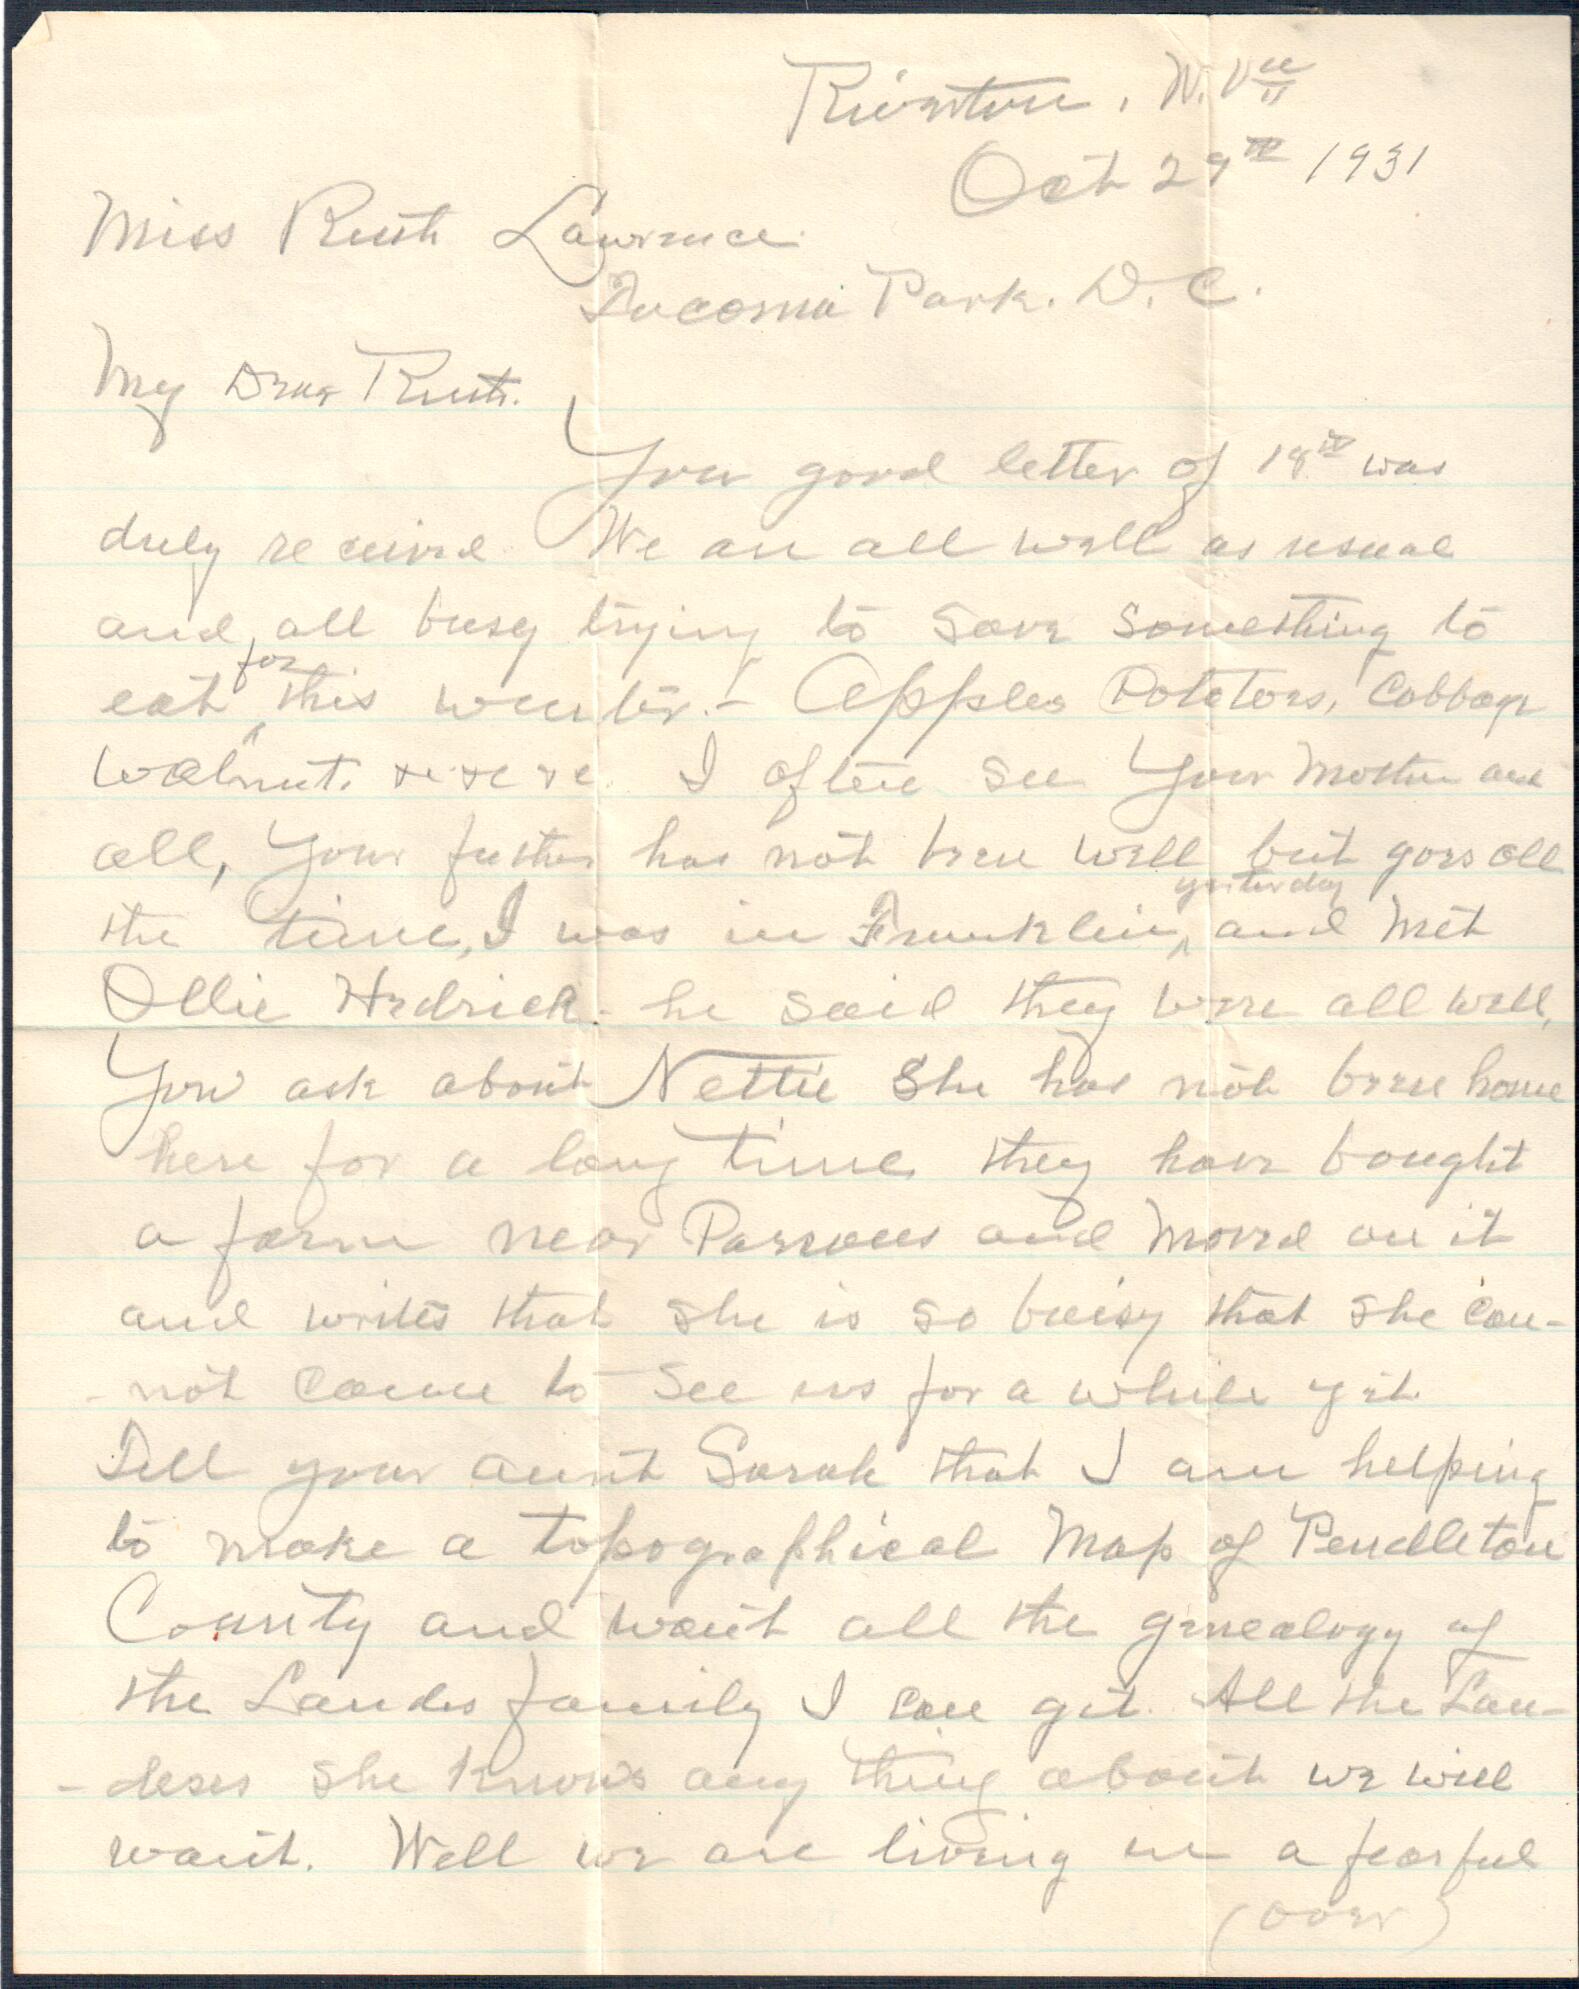 Riverton, W. Va
Oct 29th 1931
Miss Ruth Lawrence.
Tacoma Park. D. C.
My Dear Ruth.
Your good letter of 18th was
duly received We are all well as usual
and all busy trying to save something to
eat for this winter. - Apples Potatoes, Cabbage
Walnut. &c &c &c. I often see Your Mother and
all, Your father has not been well but goes all
the time, I was in Franklin yesterday and Met
Ollie Hedrick - he said they were all well,
You ask about Nettie She has not been home
here for a long time, they have bought
a farm near Parsons and Moved on it
and writes that she is so buisy that she can-
-not come to see us for a while yet.
Tell your aunt Sarah that I am helping
to make a topographical Map of Pendleton
County and want all the genealogy of
the Landes family I can get. All the Lan-
-deses she knows any thing about we will
want. Well we are living in a fearful
(over)